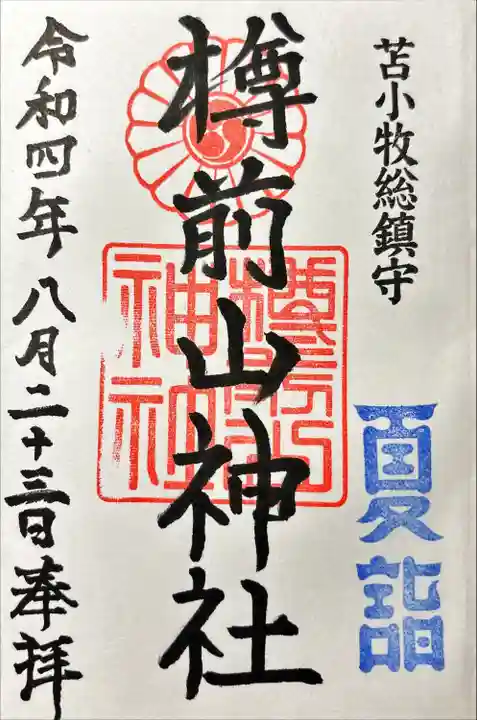 苫小牧総鎮守
夏詣
樽前山神社
樽前山神社
令和四年八月二十三日奉拝